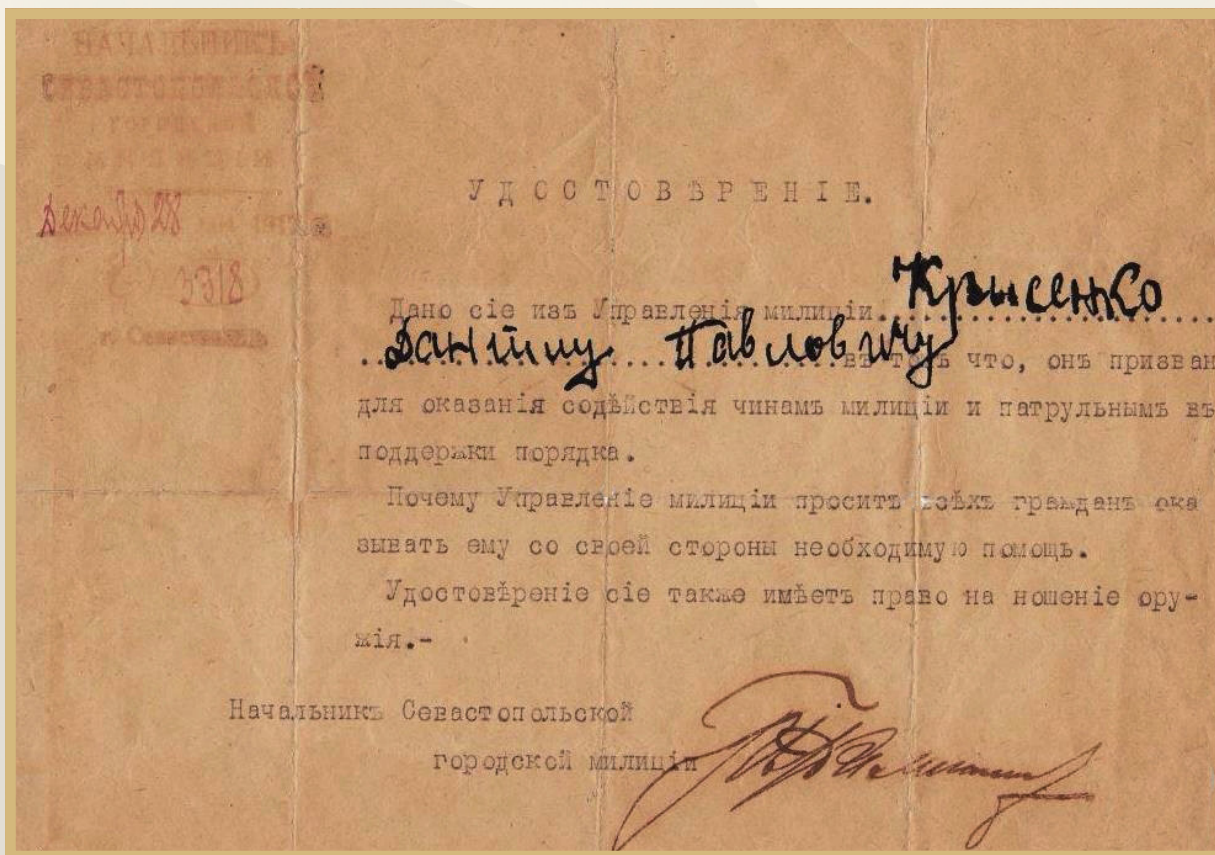 НАЧАЛЬНИКЪ
СЕВАСТОПОЛЬСКОЙ
ГОРОДСКОЙ
МИЛИЦІИ
Декабр 28
3318
г. Севастополь
УДОСТОВѢРЕНІЕ.
Дано сіе изъ Управленія милиціи Крысенко
Даниилу Павловичу въ томъ что, онъ призван
для оказанія содѣйствія чинамъ милиціи и патрульнымъ въ
поддержки порядка.
Почему Управленіе милиціи проситъ всѣхъ гражданъ ока
зывать ему со своей стороны необходимую помощь.
Удостовѣреніе сіе также имѣетъ право на ношеніе ору-
жія.-
Начальникъ Севастопольской
городской милиціи